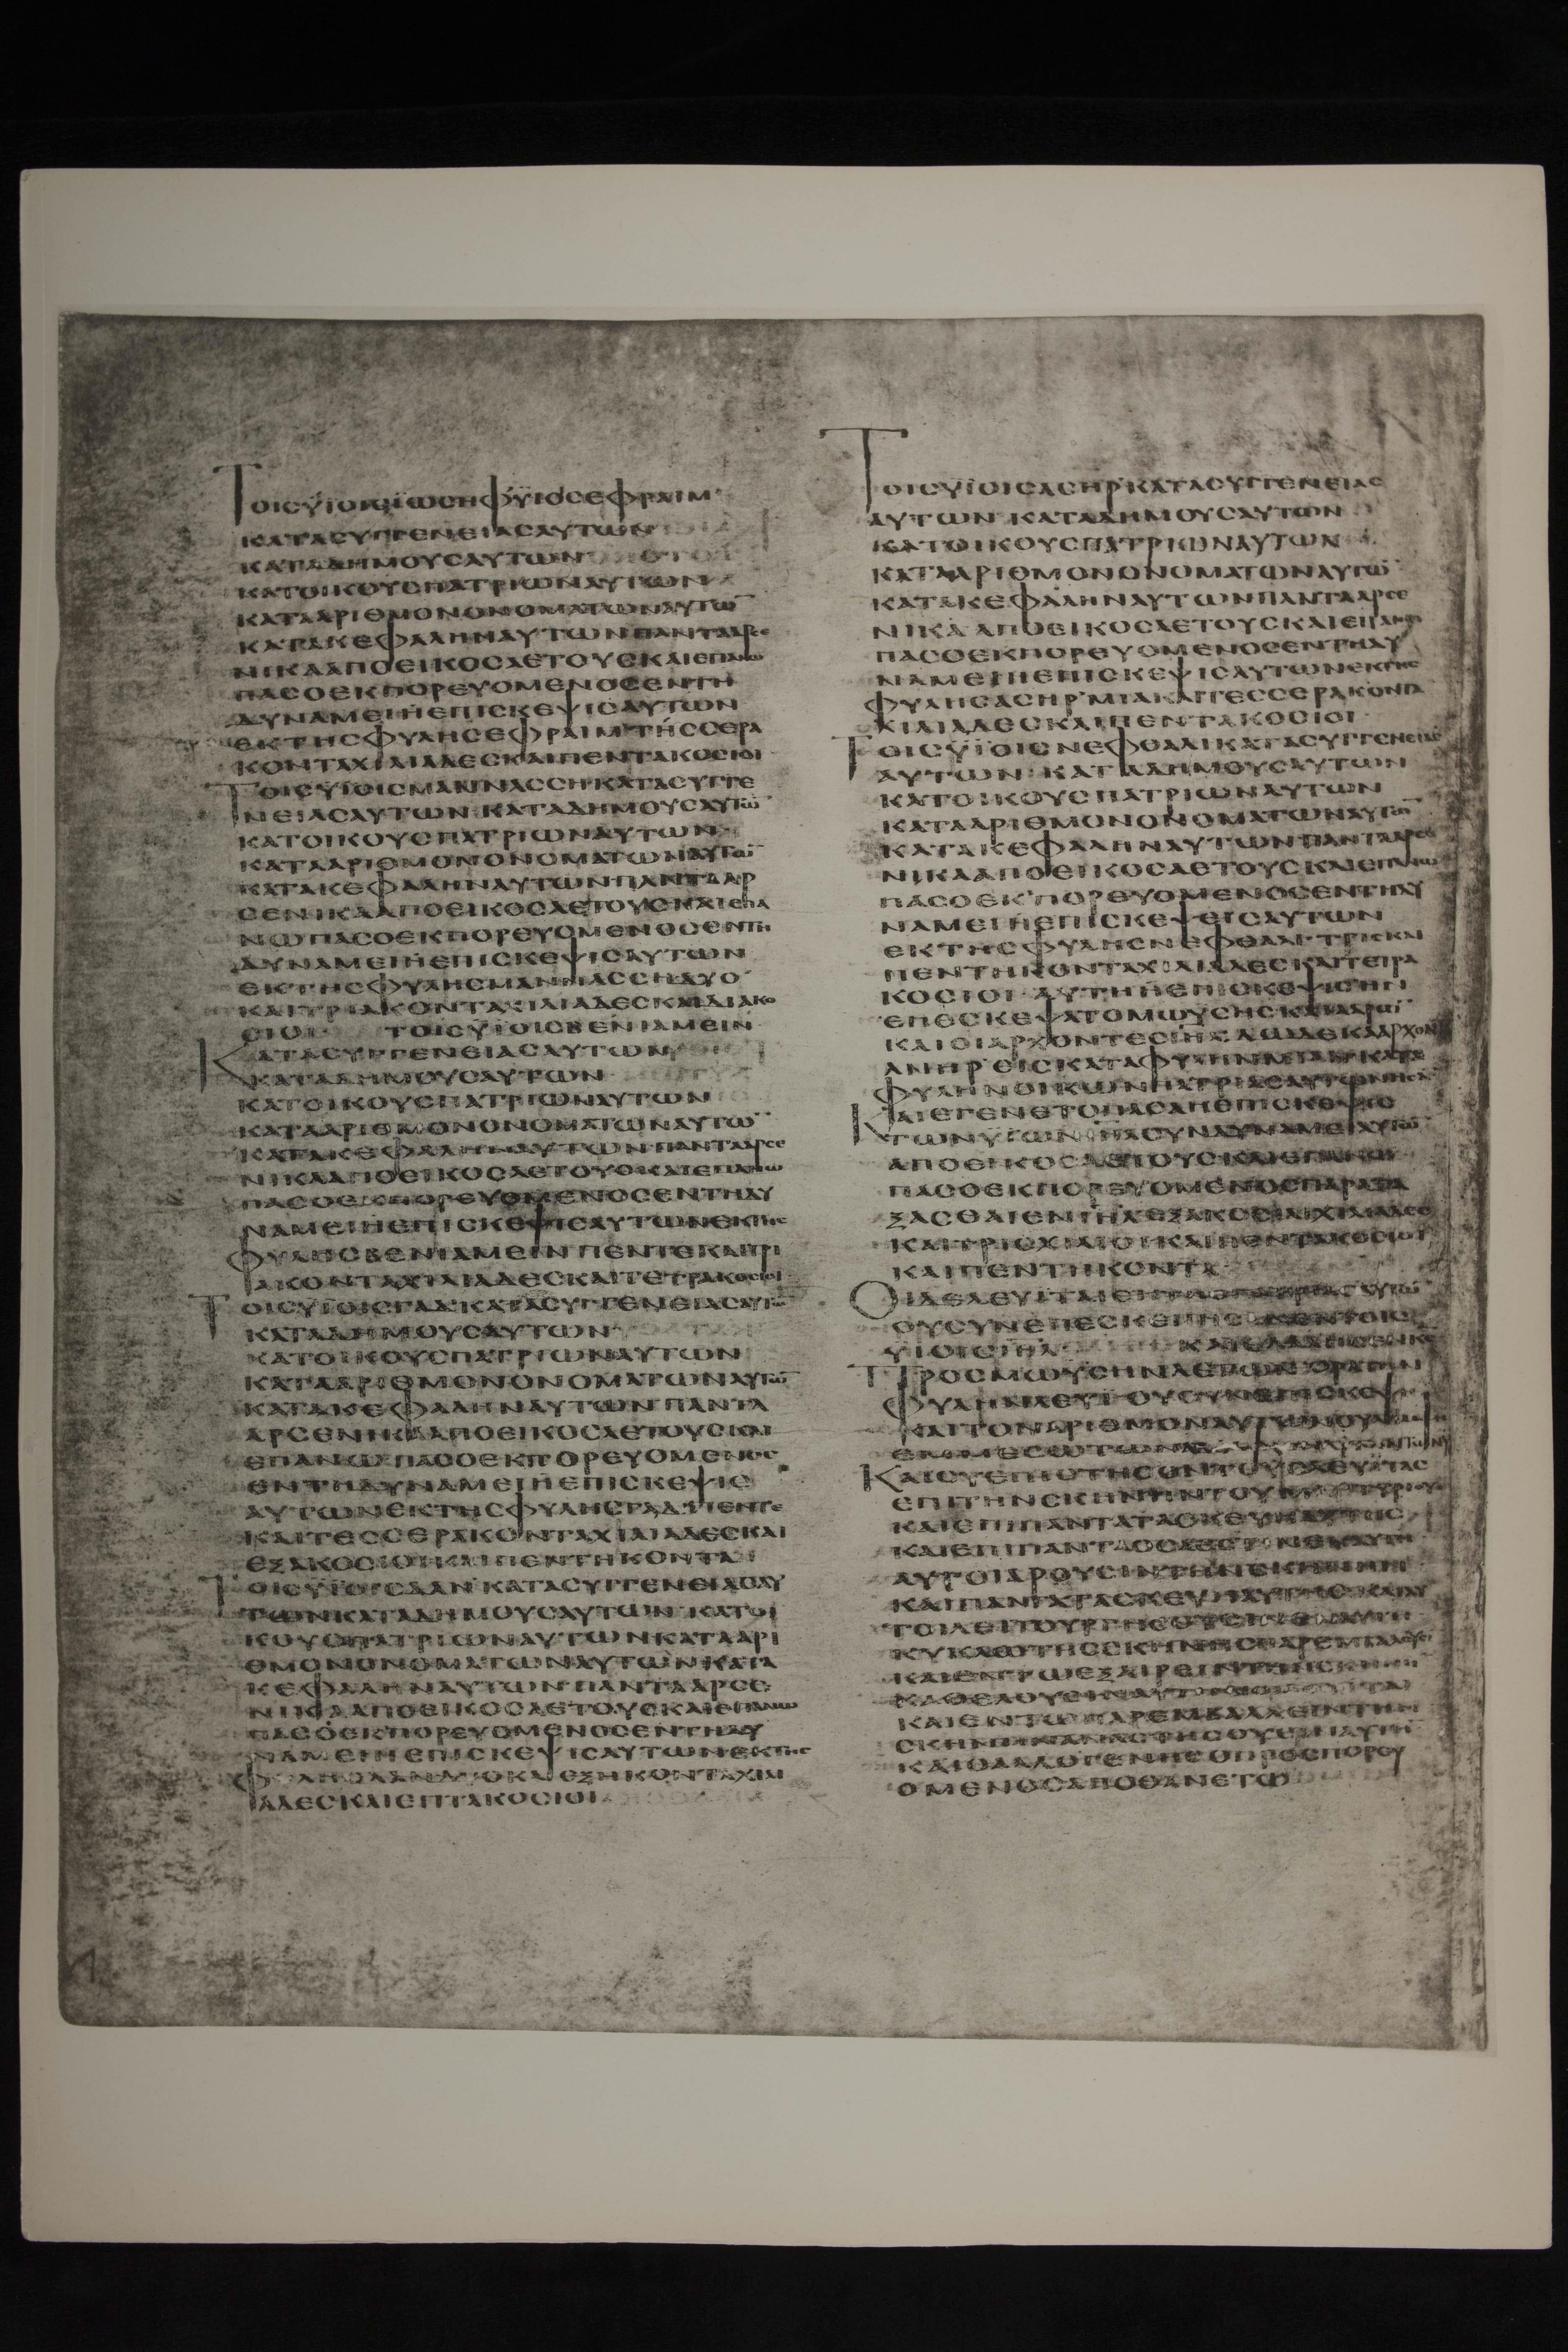 ΤΟΙCΥΪΟΙCΪΩCΗΦΥΪΟΙCΕΦΡΑΙΜ
ΚΑΤΑCΥΓΓΕΝΕΙΑCΑΥΤΩΝ
ΚΑΤΑΔΗΜΟΥCΑΥΤΩΝ
ΚΑΤΟΙΚΟΥCΠΑΤΡΙΩΝΑΥΤΩΝ
ΚΑΤΑΑΡΙΘΜΟΝΟΝΟΜΑΤΩΝΑΥΤΩ̄
ΚΑΤΑΚΕΦΑΛΗΝΑΥΤΩΝΠΑΝΤΑΑΡCΕ
ΝΙΚΑΑΠΟΕΙΚΟCΑΕΤΟΥCΚΑΙΕΠΑΝΩ
ΠΑCΟΕΚΠΟΡΕΥΟΜΕΝΟCΕΝΤΗ
ΔΥΝΑΜΕΙΗΕΠΙCΚΕΨΙCΑΥΤΩΝ
ΕΚΤΗCΦΥΛΗCΕΦΡΑΙΜΤΕCCΕΡΑ
ΚΟΝΤΑΧΙΛΙΑΔΕCΚΑΙΠΕΝΤΑΚΟCΙΟΙ
ΤΟΙCΥΪΟΙCΜΑΝΝΑCCΗΚΑΤΑCΥΓΓΕ
ΝΕΙΑCΑΥΤΩΝΚΑΤΑΔΗΜΟΥCΑΥΤΩ̄
ΚΑΤΟΙΚΟΥCΠΑΤΡΙΩΝΑΥΤΩΝ
ΚΑΤΑΑΡΙΘΜΟΝΟΝΟΜΑΤΩΝΑΥΤΩ̄
ΚΑΤΑΚΕΦΑΛΗΝΑΥΤΩΝΠΑΝΤΑΑΡ
CΕΝΙΚΑΑΠΟΕΙΚΟCΑΕΤΟΥCΚΑΙΕΠΑ
ΝΩΠΑCΟΕΚΠΟΡΕΥΟΜΕΝΟCΕΝΤΗ
ΔΥΝΑΜΕΙΗΕΠΙCΚΕΨΙCΑΥΤΩΝ
ΕΚΤΗCΦΥΛΗCΜΑΝΝΑCCΗΔΥΟ
ΚΑΙΤΡΙΑΚΟΝΤΑΧΙΛΙΑΔΕCΚΑΙΔΙΑΚΟ
CΙΟΙ ΤΟΙCΥΪΟΙCΒΕΝΙΑΜΕΙΝ
ΚΑΤΑCΥΓΓΕΝΕΙΑCΑΥΤΩΝ
ΚΑΤΑΔΗΜΟΥCΑΥΤΩΝ
ΚΑΤΟΙΚΟΥCΠΑΤΡΙΩΝΑΥΤΩΝ
ΚΑΤΑΑΡΙΘΜΟΝΟΝΟΜΑΤΩΝΑΥΤΩ̄
ΚΑΤΑΚΕΦΑΛΗΝΑΥΤΩΝΠΑΝΤΑΑΡCΕ
ΝΙΚΑΑΠΟΕΙΚΟCΑΕΤΟΥCΚΑΙΕΠΑΝΩ
ΠΑCΟΕΚΠΟΡΕΥΟΜΕΝΟCΕΝΤΗΔΥ
ΝΑΜΕΙΗΕΠΙCΚΕΨΙCΑΥΤΩΝΕΚΤΗC
ΦΥΛΗCΒΕΝΙΑΜΕΙΝΠΕΝΤΕΚΑΙΤΡΙ
ΑΚΟΝΤΑΧΙΛΙΑΔΕCΚΑΙΤΕΤΡΑΚΟCΙΟΙ
ΤΟΙCΥΪΟΙCΓΑΔΚΑΤΑCΥΓΓΕΝΕΙΑCΑΥΤΩ̄
ΚΑΤΑΔΗΜΟΥCΑΥΤΩΝ
ΚΑΤΟΙΚΟΥCΠΑΤΡΙΩΝΑΥΤΩΝ
ΚΑΤΑΑΡΙΘΜΟΝΟΝΟΜΑΤΩΝΑΥΤΩ̄
ΚΑΤΑΚΕΦΑΛΗΝΑΥΤΩΝΠΑΝΤΑ
ΑΡCΕΝΙΚΑΑΠΟΕΙΚΟCΑΕΤΟΥCΚΑΙ
ΕΠΑΝΩΠΑCΟΕΚΠΟΡΕΥΟΜΕΝΟC
ΕΝΤΗΔΥΝΑΜΕΙΗΕΠΙCΚΕΨΙC
ΑΥΤΩΝΕΚΤΗCΦΥΛΗCΓΑΔΠΕΝΤΕ
ΚΑΙΤΕCCΕΡΑΚΟΝΤΑΧΙΛΙΑΔΕCΚΑΙ
ΕΞΑΚΟCΙΟΙΚΑΙΠΕΝΤΗΚΟΝΤΑ
ΤΟΙCΥΪΟΙCΔΑΝΚΑΤΑCΥΓΓΕΝΕΙΑCΑΥ
ΤΩΝΚΑΤΑΔΗΜΟΥCΑΥΤΩΝΚΑΤΟΙ
ΚΟΥCΠΑΤΡΙΩΝΑΥΤΩΝΚΑΤΑΑΡΙ
ΘΜΟΝΟΝΟΜΑΤΩΝΑΥΤΩΝΚΑΤΑ
ΚΕΦΑΛΗΝΑΥΤΩΝΠΑΝΤΑΑΡCΕ
ΝΙΚΑΑΠΟΕΙΚΟCΑΕΤΟΥCΚΑΙΕΠΑΝΩ
ΠΑCΟΕΚΠΟΡΕΥΟΜΕΝΟCΕΝΤΗΔΥ
ΝΑΜΕΙΗΕΠΙCΚΕΨΙCΑΥΤΩΝΕΚΤΗC
ΦΥΛΗCΔΑΝΔΥΟΚΑΙΕΞΗΚΟΝΤΑΧΙΛΙ
ΑΔΕCΚΑΙΕΠΤΑΚΟCΙΟΙ
ΤΟΙCΥΪΟΙCΑCΗΡΚΑΤΑCΥΓΓΕΝΕΙΑC
ΑΥΤΩΝΚΑΤΑΔΗΜΟΥCΑΥΤΩΝ
ΚΑΤΟΙΚΟΥCΠΑΤΡΙΩΝΑΥΤΩΝ
ΚΑΤΑΑΡΙΘΜΟΝΟΝΟΜΑΤΩΝΑΥΤΩ̄
ΚΑΤΑΚΕΦΑΛΗΝΑΥΤΩΝΠΑΝΤΑΑΡCΕ
ΝΙΚΑΑΠΟΕΙΚΟCΑΕΤΟΥCΚΑΙΕΠΑΝΩ
ΠΑCΟΕΚΠΟΡΕΥΟΜΕΝΟCΕΝΤΗΔΥ
ΝΑΜΕΙΗΕΠΙCΚΕΨΙCΑΥΤΩΝΕΚΤΗC
ΦΥΛΗCΑCΗΡΜΙΑΚΑΙΤΕCCΕΡΑΚΟΝΤΑ
ΧΙΛΙΑΔΕCΚΑΙΠΕΝΤΑΚΟCΙΟΙ
ΤΟΙCΥΪΟΙCΝΕΦΘΑΛΙΚΑΤΑCΥΓΓΕΝΕΙΑC
ΑΥΤΩΝΚΑΤΑΔΗΜΟΥCΑΥΤΩΝ
ΚΑΤΟΙΚΟΥCΠΑΤΡΙΩΝΑΥΤΩΝ
ΚΑΤΑΑΡΙΘΜΟΝΟΝΟΜΑΤΩΝΑΥΤΩ̄
ΚΑΤΑΚΕΦΑΛΗΝΑΥΤΩΝΠΑΝΤΑΑΡCΕ
ΝΙΚΑΑΠΟΕΙΚΟCΑΕΤΟΥCΚΑΙΕΠΑΝΩ
ΠΑCΟΕΚΠΟΡΕΥΟΜΕΝΟCΕΝΤΗΔΥ
ΝΑΜΕΙΗΕΠΙCΚΕΨΕΙCΑΥΤΩΝ
ΕΚΤΗCΦΥΛΗCΝΕΦΘΑΛΙΤΡΙCΚΑΙ
ΠΕΝΤΗΚΟΝΤΑΧΙΛΙΑΔΕCΚΑΙΤΕΤΡΑ
ΚΟCΙΟΙΑΥΤΗΗΕΠΙCΚΕΨΙCΗΝ
ΕΠΕCΚΕΨΑΤΟΜΩΥCΗCΚΑΙΑΑΡΩ̄
ΚΑΙΟΙΑΡΧΟΝΤΕCΙΗΛΔΩΔΕΚΑΑΡΧΟΝ
ΦΥΛΗΝΟΙΚΩΝΠΑΤΡΙΑC
ΚΑΙΕΓΕΝΕΤΟΠΑCΑΗΕΠΙCΚΕΨΙC
ΤΩΝΥΪΩΝΙΗΛCΥΝΔΥΝΑΜΕΙΑΥΤΩ̄
ΑΠΟΕΙΚΟCΑΕΤΟΥCΚΑΙΕΠΑΝΩ
ΠΑCΟΕΚΠΟΡΕΥΟΜΕΝΟCΠΑΡΑΤΑ
ΞΑCΘΑΙΕΝΙΗΛΕΞΑΚΟCΙΑΙΧΙΛΙΑΔΕC
ΚΑΙΤΡΙCΧΙΛΙΟΙΚΑΙΠΕΝΤΑΚΟCΙΟΙ
ΚΑΙΠΕΝΤΗΚΟΝΤΑ
ΟΙΔΕΛΕΥΙΤΑΙ
ΟΥCΥΝΕΠΕCΚΕΠΗCΑΝΕΝΤΟΙC
ΥΪΟΙCΙΗΛ ΚΑΙΕΛΑΛΗCΕΝΚC
ΠΡΟCΜΩΥCΗΝΛΕΓΩΝΟΡΑΤΗΝ
ΦΥΛΗΝΛΕΥΙΟΥCΥΝΕΠΙCΚΕΨΗ
ΚΑΙΤΟΝΑΡΙΘΜΟΝΑΥΤΩΝΟΥ
ΕΜΜΕCΩΤΩΝ
ΚΑΙCΥΕΠΙCΤΗCΟΝΤΟΥCΛΕΥΙΤΑC
ΕΠΙΤΗΝCΚΗΝΗΝΤΟΥ
ΚΑΙΕΠΙΠΑΝΤΑΤΑCΚΕΥΗΑΥΤΗC
ΚΑΙΕΠΙΠΑΝΤΑΟCΑΕCΤΙΝΕΝΑΥΤΗ
ΑΥΤΟΙΑΡΟΥCΙΝΤΗΝCΚΗΝΗΝ
ΚΑΙΠΑΝΤΑΤΑCΚΕΥΗΑΥΤΗCΚΑΙΑΥ
ΤΟΙΛΕΙΤΟΥΡΓΗCΟΥCΙΝΕΝΑΥΤΗ
ΚΥΚΛΩΤΗCCΚΗΝΗCΠΑΡΕΜΒΑΛΟΥCΙ
ΚΑΙΕΝΤΩΕΞΑΙΡΕΙΝΤΗΝCΚΗΝΗΝ
ΚΑΘΕΛΟΥCΙΝΑΥΤΗΝΟΙΛΕΥΙΤΑΙ
ΚΑΙΕΝΤΩΠΑΡΕΜΒΑΛΛΕΙΝΤΗΝ
CΚΗΝΗΝΑΝΑCΤΗCΟΥCΙΝ
ΚΑΙΟΑΛΛΟΓΕΝΗCΟΠΡΟCΠΟΡΕΥ
ΟΜΕΝΟCΑΠΟΘΑΝΕΤΩ